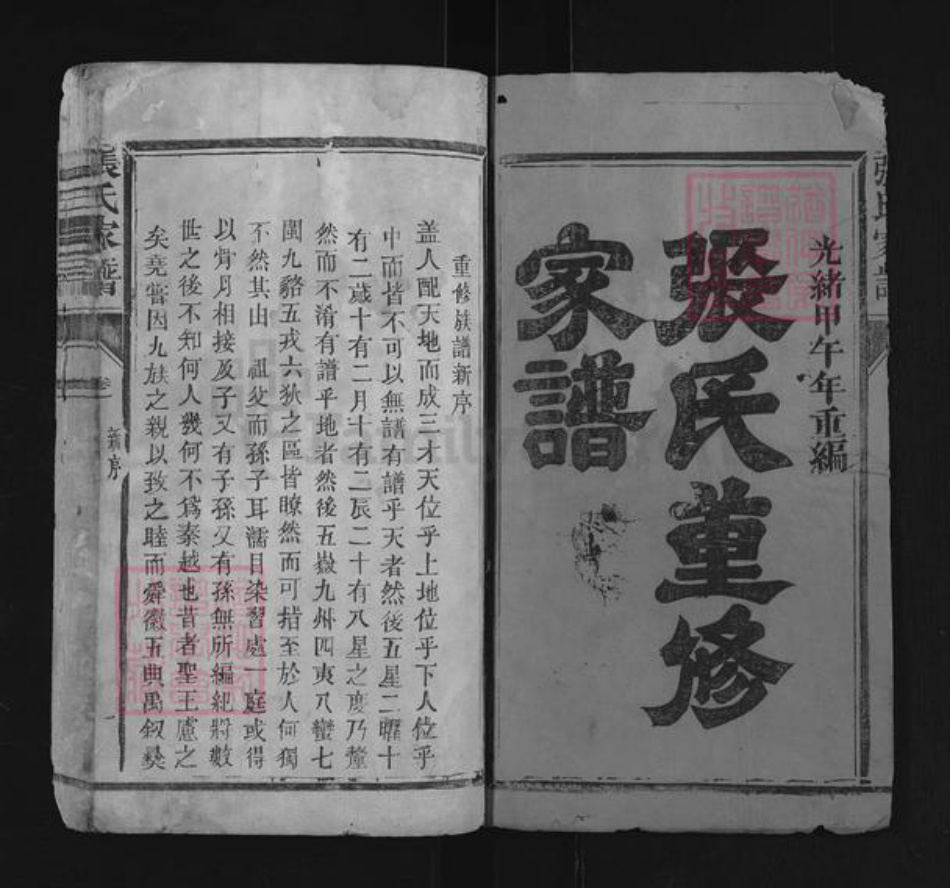 光緒甲午年重編
張氏重修
家譜
重修族譜新序
蓋人配天地而成三才天位乎上地位乎下人位乎
中而皆不可以無譜有譜乎天者然後五星二曜十
有二歲十有二月十有二辰二十有八星之度乃釐
然而不淆有譜乎地者然後五嶽九州四夷八蠻七
閩九貉五戎六狄之區皆瞭然而可指至於人何獨
不然其由祖父而孫子耳濡目染習處一庭或得
以骨月相接及子又有子孫又有孫無所編紀將數
世之後不知何人幾何不爲秦越也昔者聖王慮之
矣堯嘗因九族之親以致之睦而舜徽五典禹敘彝
張氏家譜
卷
新序
一